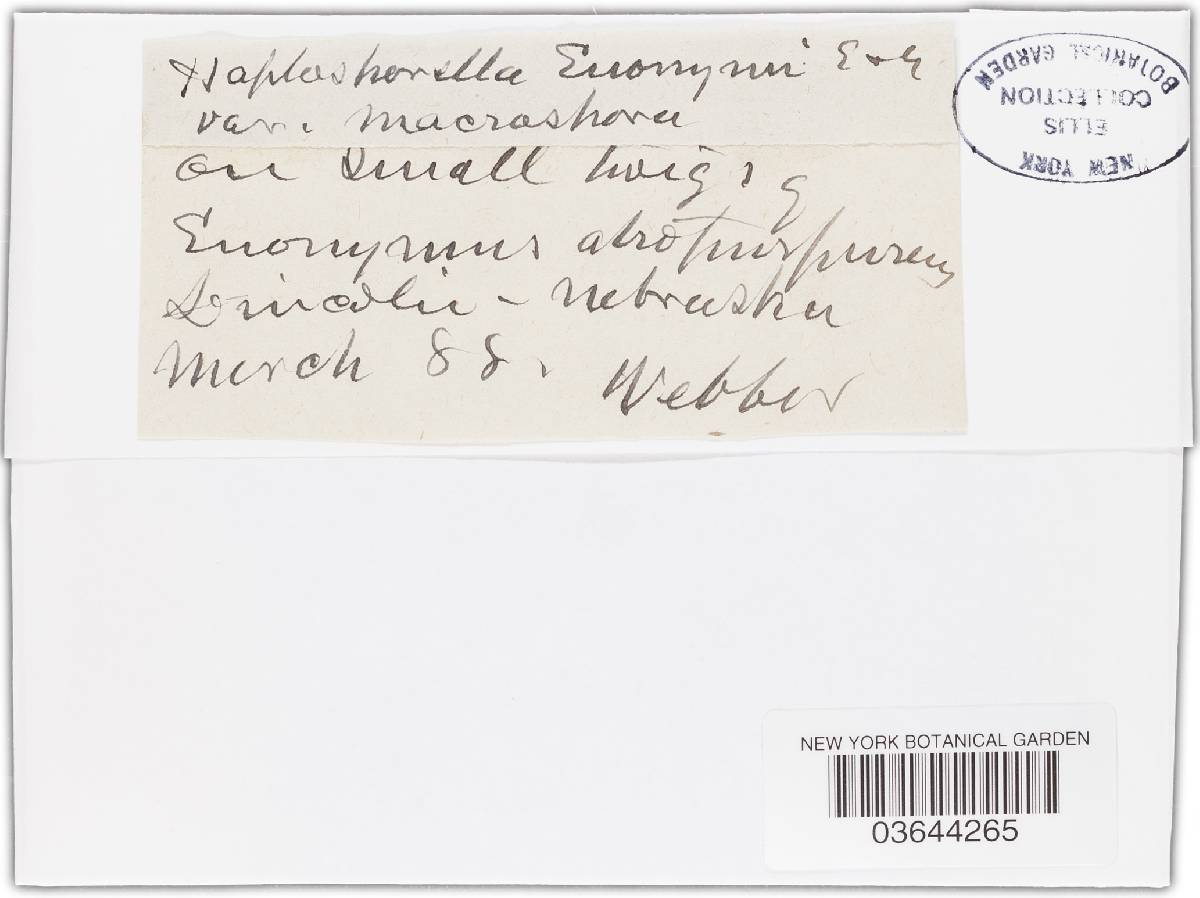 Haplosporella Euonymi E & E.
var. macrospora
on small twigs of
Euonymus atropurpureus
Lincoln - Nebraska
March 88. Webber
NEW YORK
ELLIS
COLLECTION
BOTANICAL GARDEN
NEW YORK BOTANICAL GARDEN
03644265